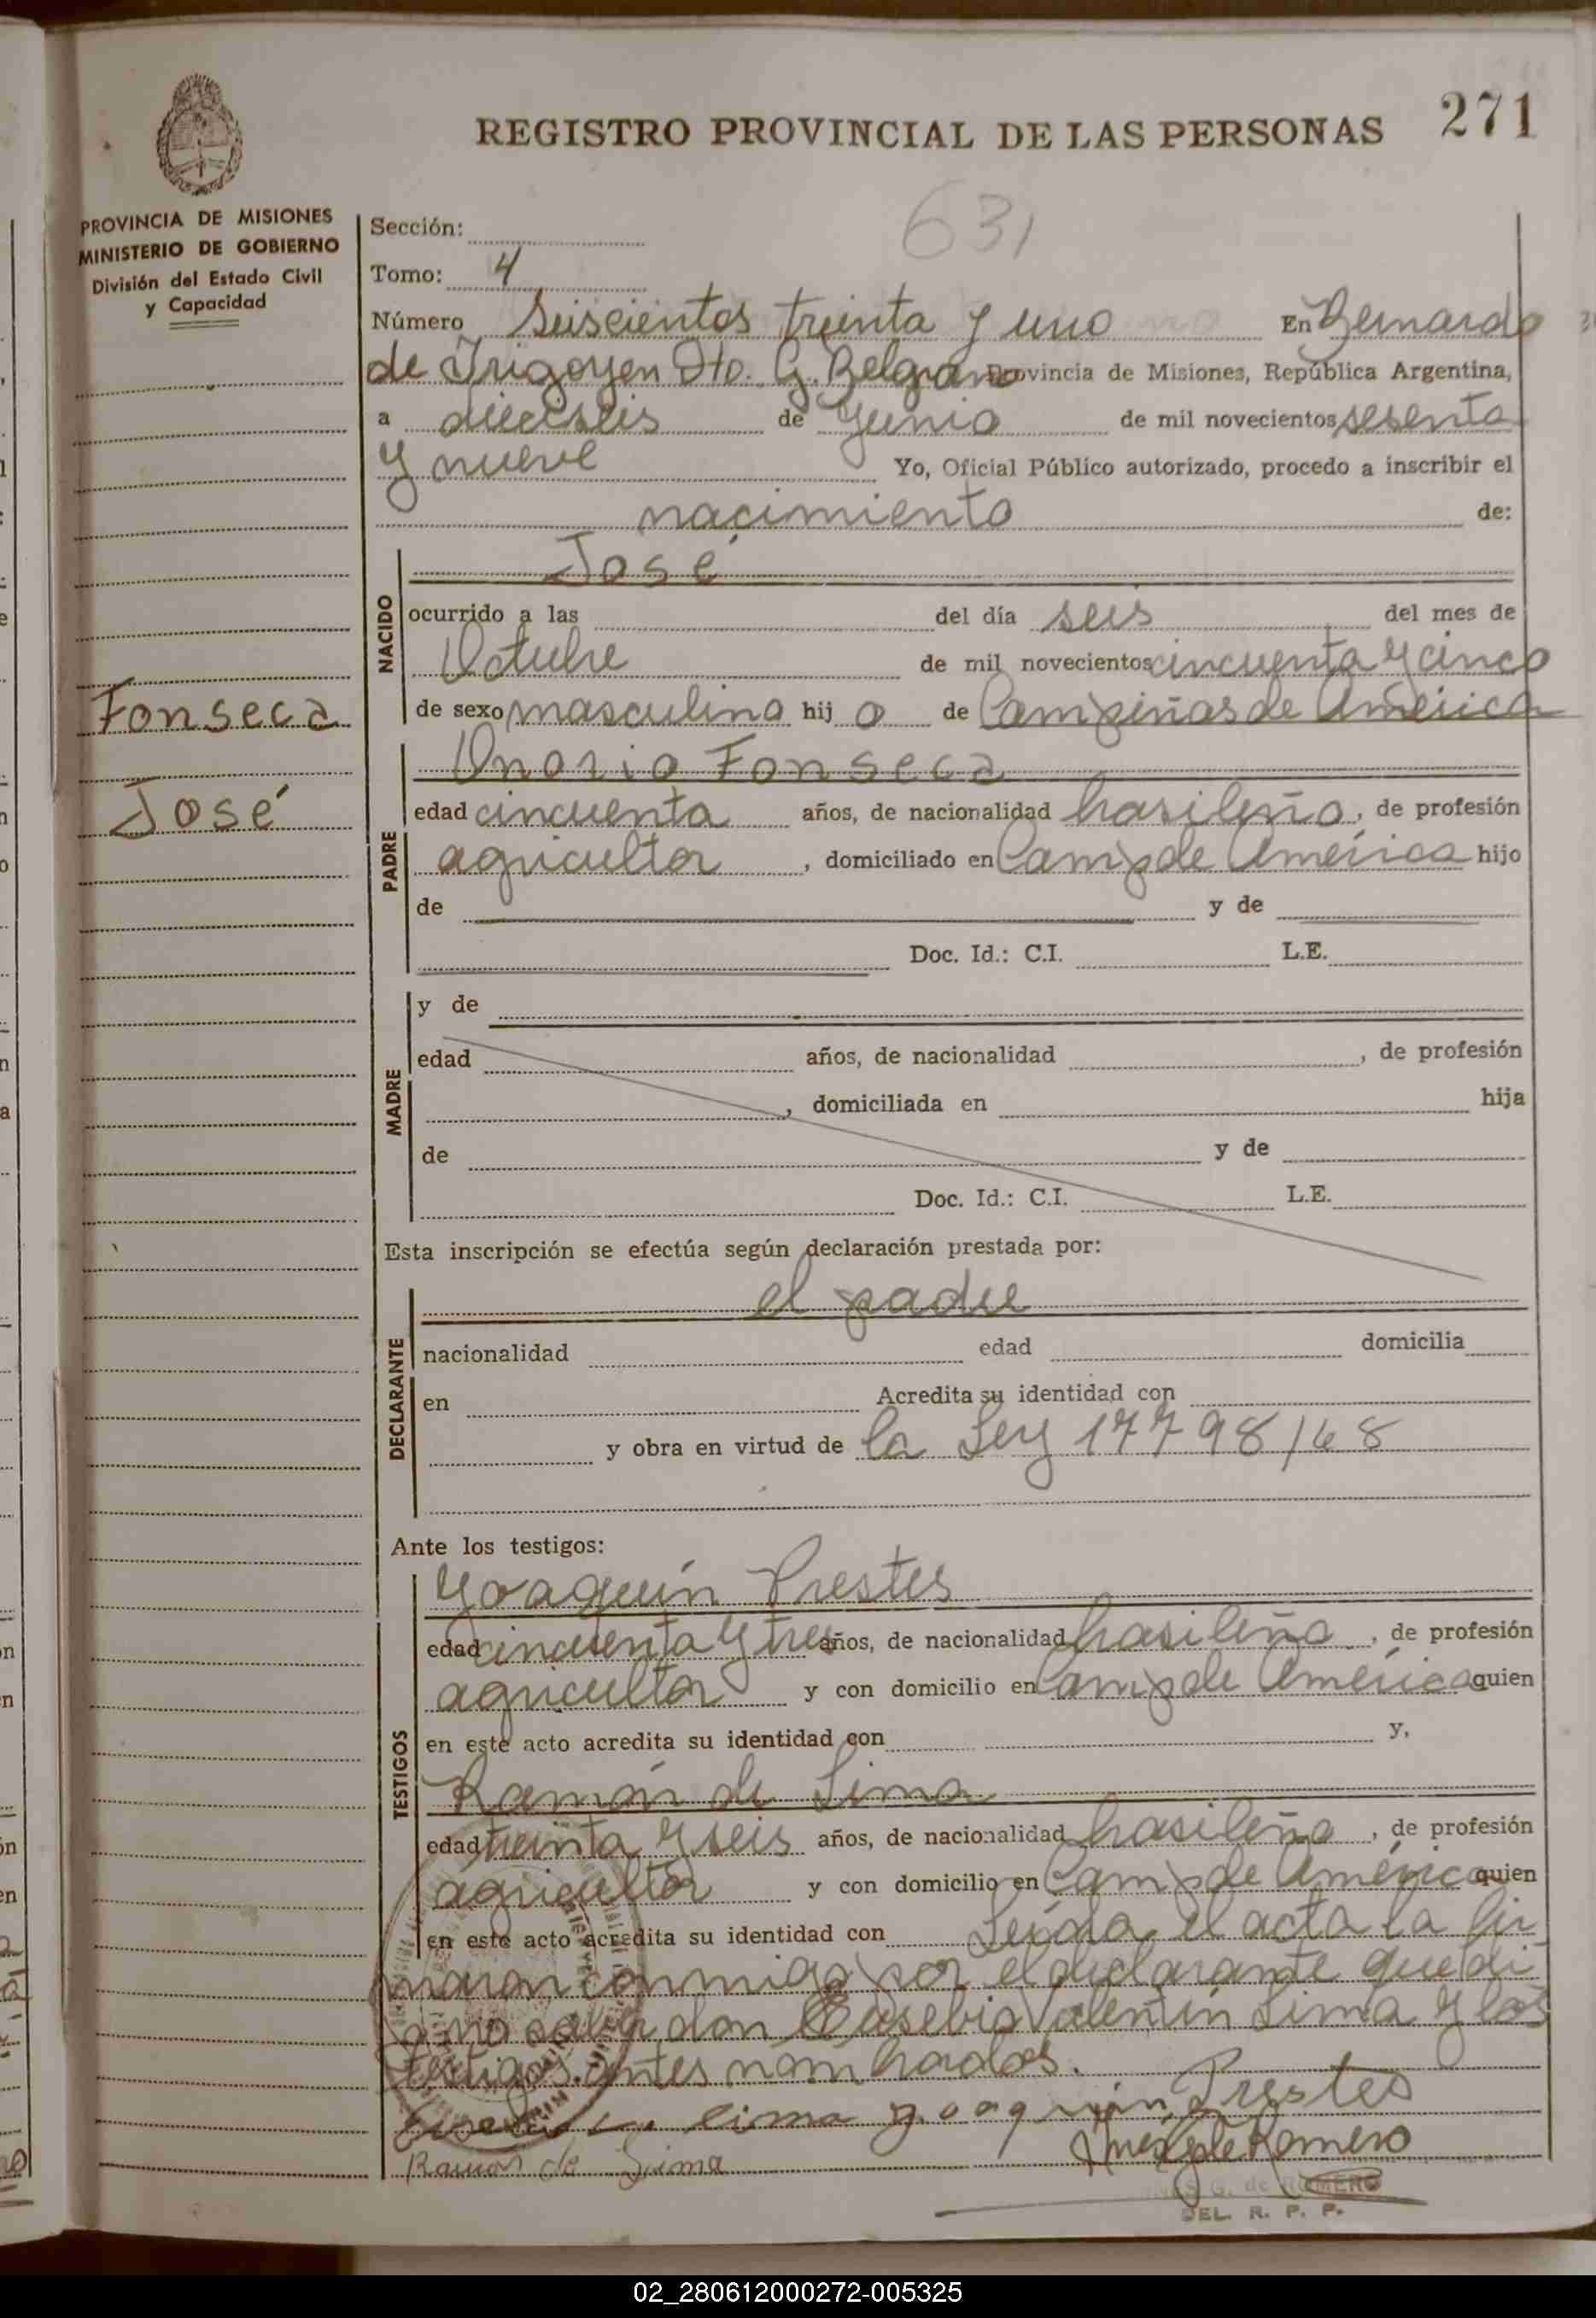 REGISTRO PROVINCIAL DE LAS PERSONAS 271
PROVINCIA DE MISIONES
MINISTERIO DE GOBIERNO
División del Estado Civil
y Capacidad
631
Sección:
Tomo: 4
Número Seiscientos treinta y uno En Bernardo
de Irigoyen Dto. G. Belgrano Provincia de Misiones, República Argentina,
a dieciseis de Junio de mil novecientos sesenta
y nueve Yo, Oficial Público autorizado, procedo a inscribir el
nacimiento de:
NACIDO
José
ocurrido a las del día seis del mes de
Octubre de mil novecientos cincuenta y cinco
de sexo masculino hij o de Campiñas de América
Fonseca
José
PADRE
Onorio Fonseca
edad cincuenta años, de nacionalidad brasileño, de profesión
agricultor, domiciliado en Camp de América hijo
de y de
Doc. Id.: C.I. L.E.
MADRE
y de
edad años, de nacionalidad , de profesión
, domiciliada en hija
de y de
Doc. Id.: C.I. L.E.
Esta inscripción se efectúa según declaración prestada por:
DECLARANTE
el padre
nacionalidad edad domicilia
en Acredita su identidad con
y obra en virtud de la Ley 17798/68
Ante los testigos:
TESTIGOS
Yoaquín Prestes
edad cincuenta y tres años, de nacionalidad brasileño, de profesión
agricultor y con domicilio en Camp de América quien
en este acto acredita su identidad con y,
Ramón de Lima
edad treinta y seis años, de nacionalidad brasileño, de profesión
agricultor y con domicilio en Camp de América quien
en este acto acredita su identidad con Leída el acta la fir
maron conmigo por el declarante que di
jo no saber don Eusebio Valentín Lima y los
testigos antes nombrados.
lima Yoaquín Prestes
Ramon de Lima Ines G de Romero
INES G. de ROMERO
DEL. R. P. P.
02_280612000272-005325